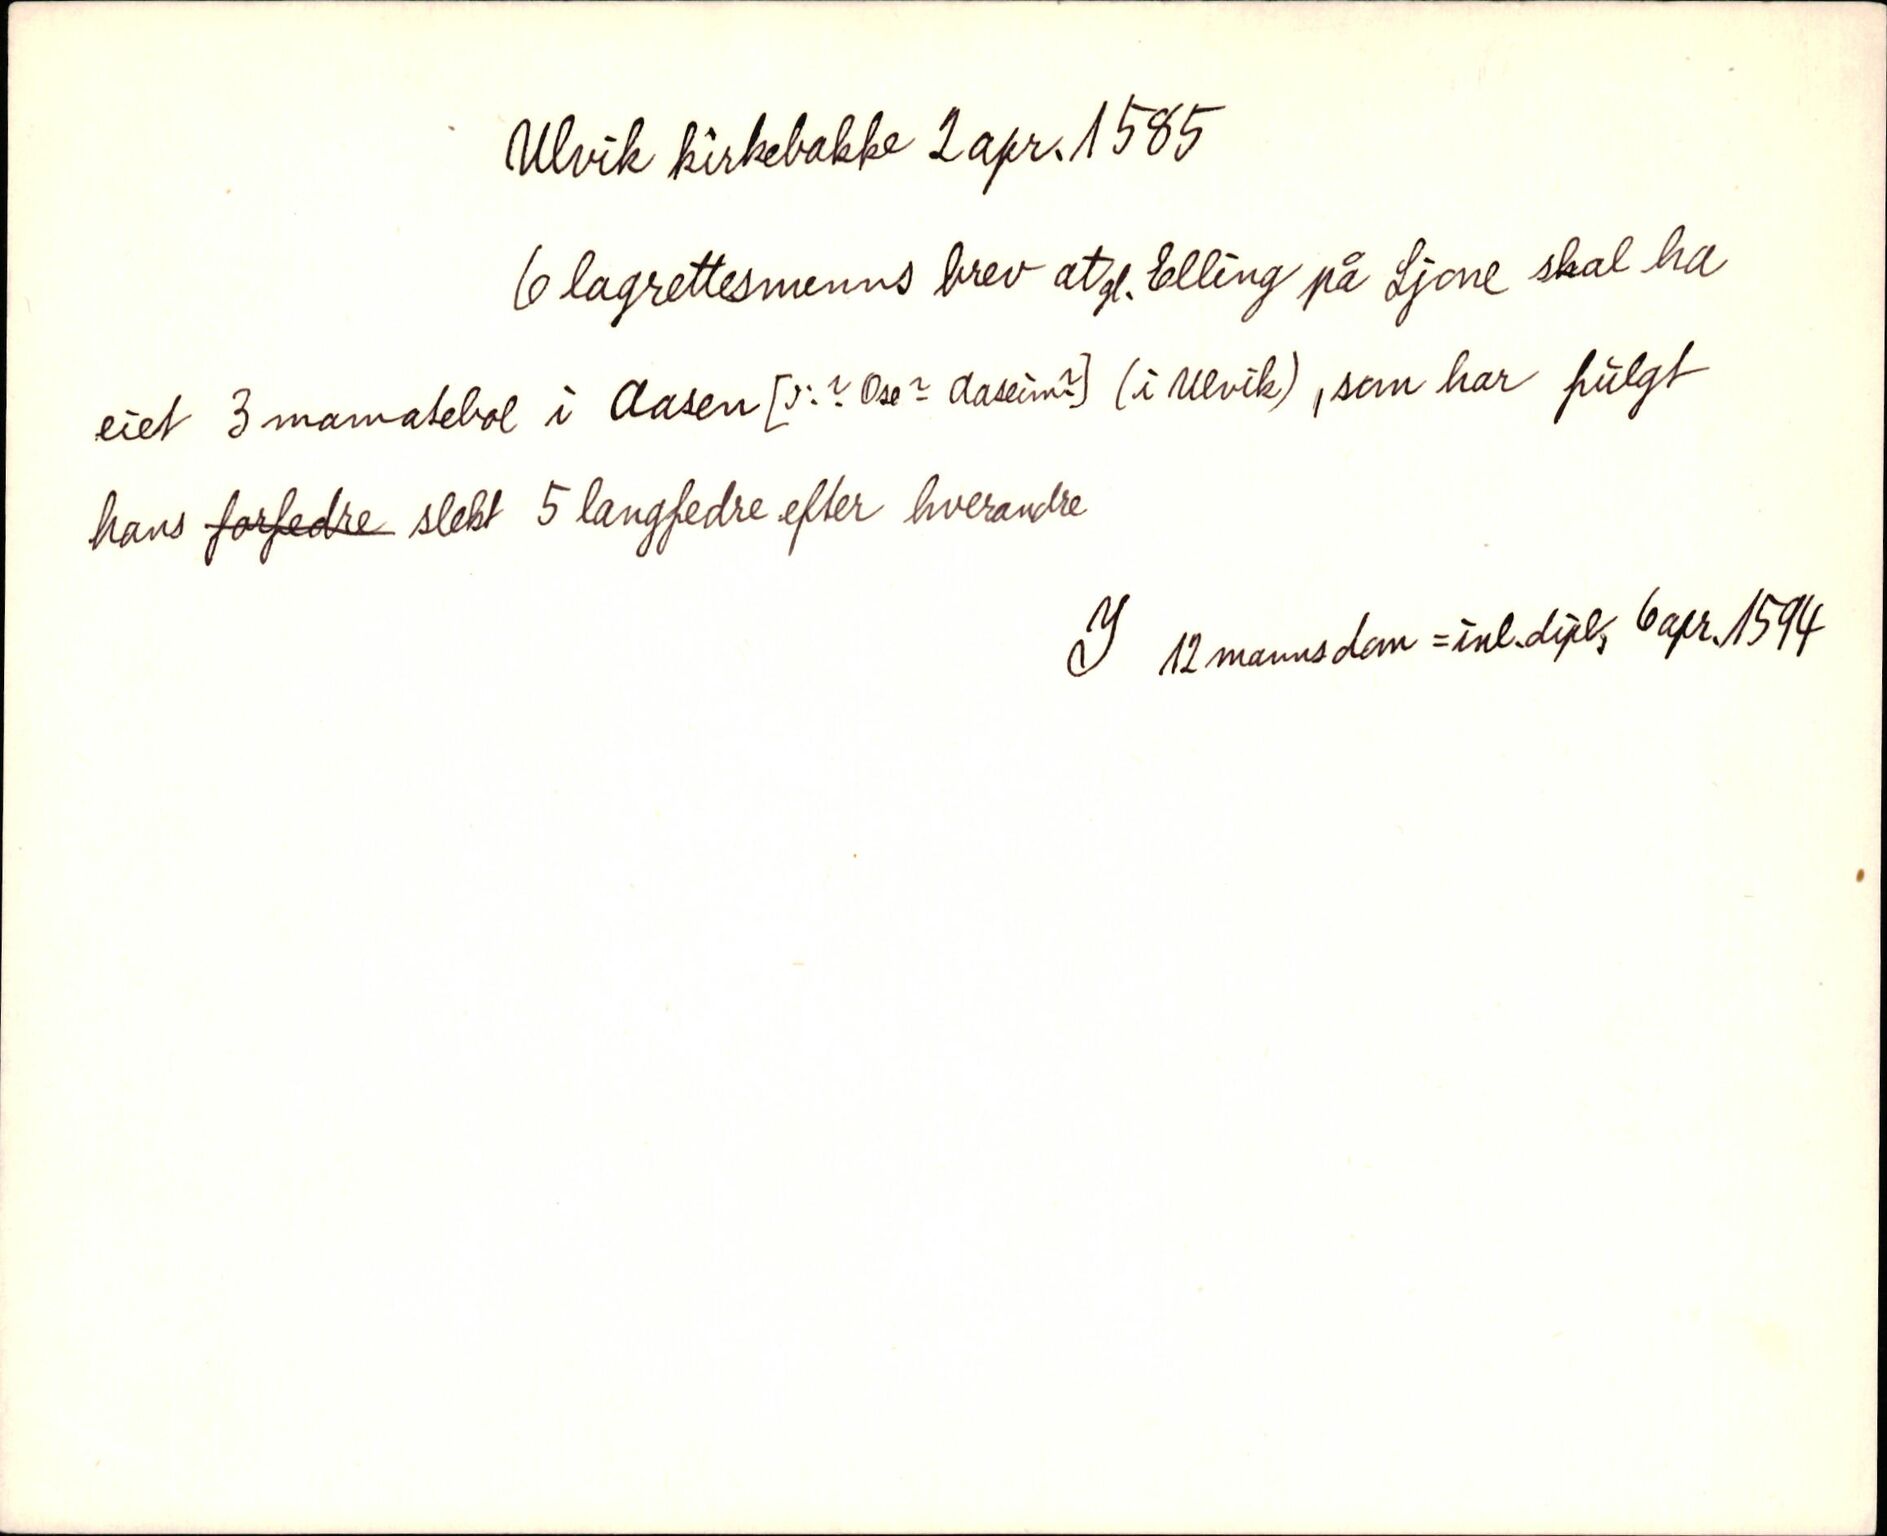 Ulvik kirkebakke 2 apr. 1585
6 lagrettesmenns brev at gl. Elling på Ljone skal ha
eiet 3 mamatebol i Aasen [ɔ: ? Ose ? Aaseim ?] (i Ulvik), som har fulgt
hans forfedre slekt 5 langfedre efter hverandre
I 12 manns dom = inl. dipl, 6 apr. 1594